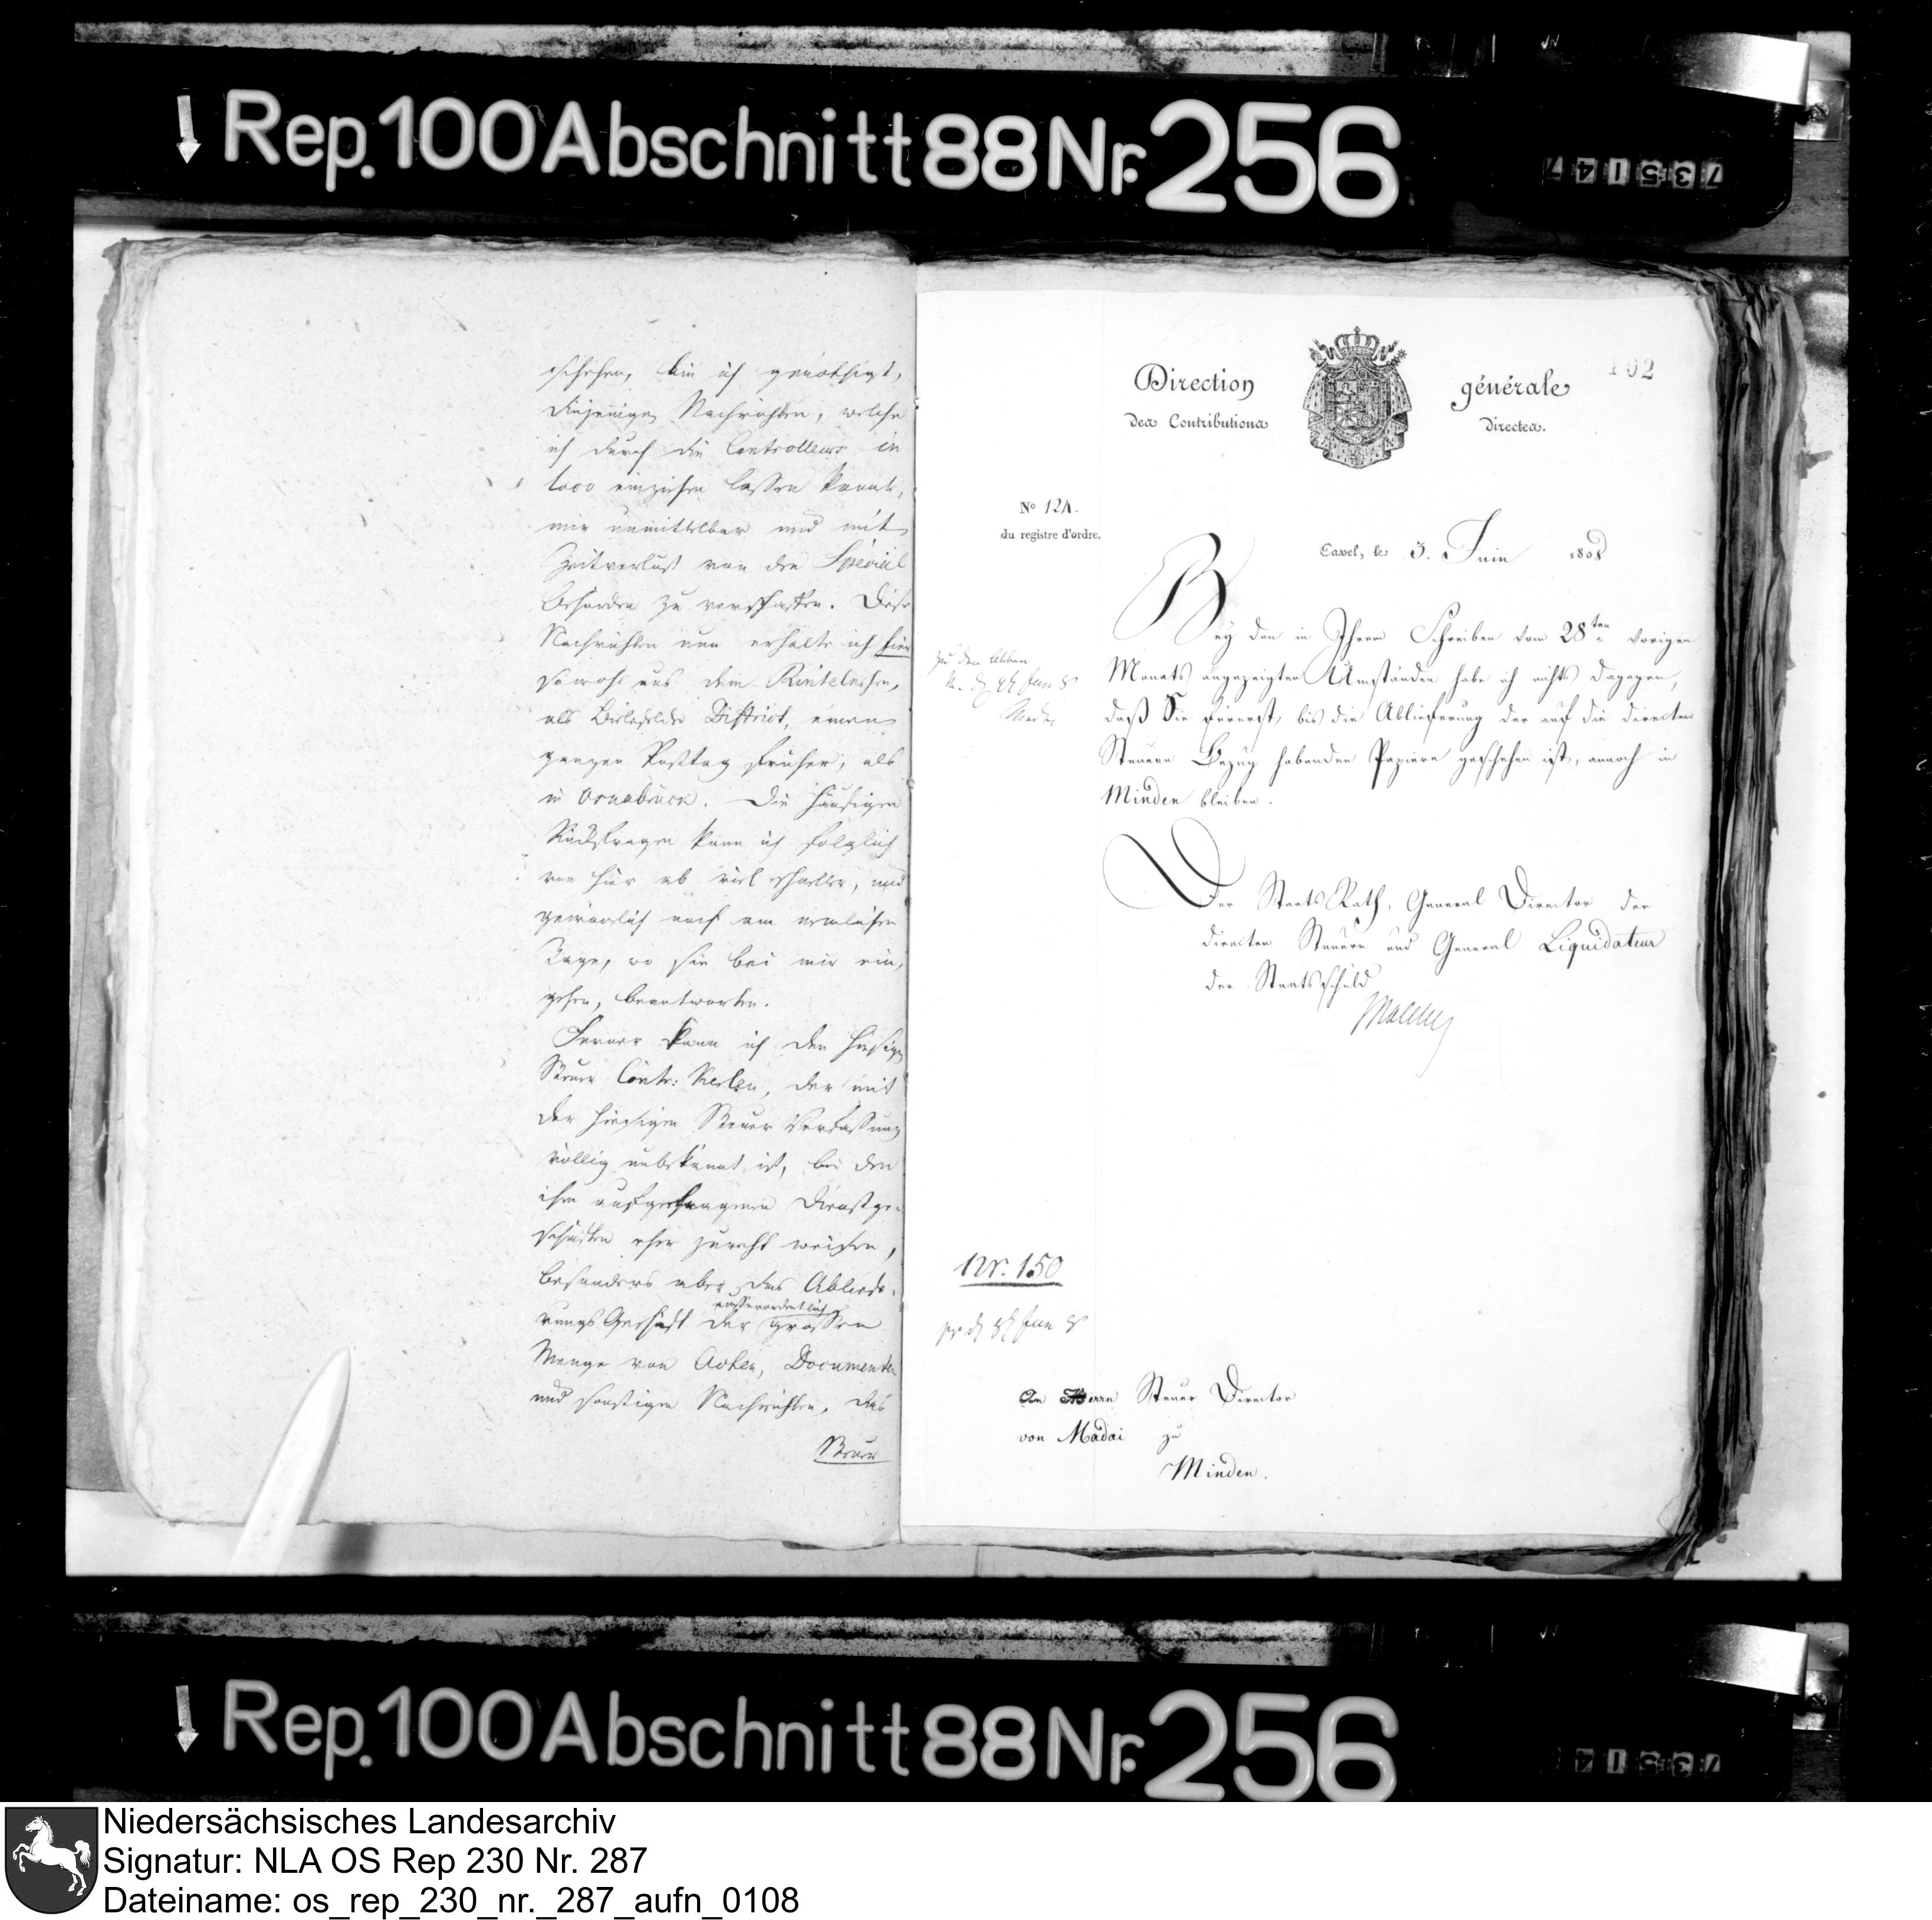 Rep.100 Abschnitt 88 Nr. 256
735147
schehen, bin ich genöthigt,
diejenigen Nachrichten, welche
ich durch die Controlleurs in
loco einziehen lassen konnte,
mir unmittelbar und mit
Zeitverlust von den Special
Behörden zu verschaffen. Diese
Nachrichten nun erhalte ich hier
sowohl aus dem Rintelnschen,
als Bielefelder District, einen
ganzen Posttag früher, als
in Osnabrück. Die häufigen
Rückfragen kann ich folglich
von hier ab viel schneller, und
gewöhnlich noch am nemlichen
Tage, wo sie bei mir ein,
gehen, beantworten.
Ferner kann ich den hiesigen
Steuer Contr: , der mit
der hiesigen Steuer Verfassung
völlig unbekannt ist, bei den
ihm aufgetragenen Dienstge-
schäften eher zurecht weisen,
besonders aber das Abliefe-
rungs Geschäft der ausserordentlich großen
Menge von Acten, Documenten
und sonstigen Nachrichten, das
Steuer
102
Direction générale
des Contributions directes.
No 124.
du registre d'ordre.
Cassel, le 3. Juin 1808
Bey den in Ihrem Schreiben vom 28ten vorigen
Monats angezeigten Umständen habe ich nichts dagegen,
daß Sie fürerst, bis die Ablieferung der auf die directen
Steuern Bezug habenden Papiere geschehen ist, annoch in
Minden bleiben.
zu den Akten
M. d 9t Jun 8
Madai
Der StaatsRath, General Director der
directen Steuern und General Liquidateur
der Staatsschuld
Malchus
Nr. 150
pr d 8t Jun 8
An Herrn Steuer Director
von Madai zu
Minden.
Rep.100 Abschnitt 88 Nr. 256
Niedersächsisches Landesarchiv
Signatur: NLA OS Rep 230 Nr. 287
Dateiname: os_rep_230_nr._287_aufn_0108